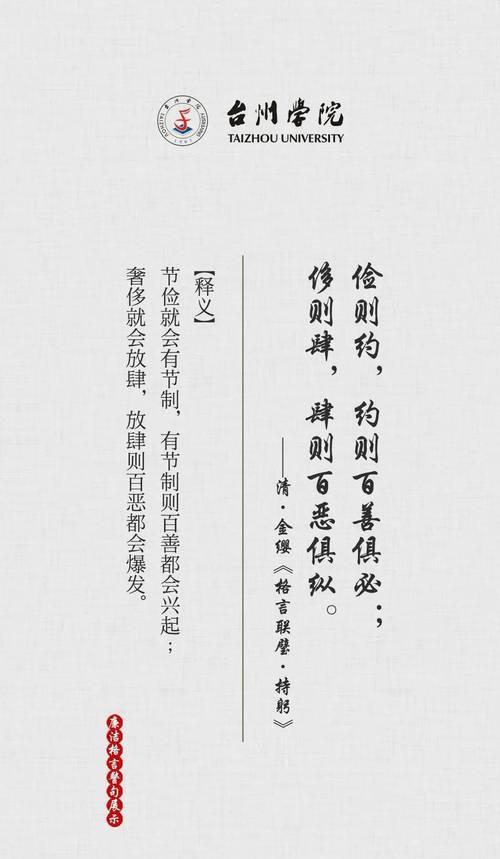 台州学院
TAIZHOU UNIVERSITY
俭则约，约则百善俱兴；
侈则肆，肆则百恶俱纵。
——清·金缨《格言联璧·持躬》
【释义】
节俭就会有节制，有节制则百善都会兴起；
奢侈就会放肆，放肆则百恶都会爆发。
廉洁格言警句展示